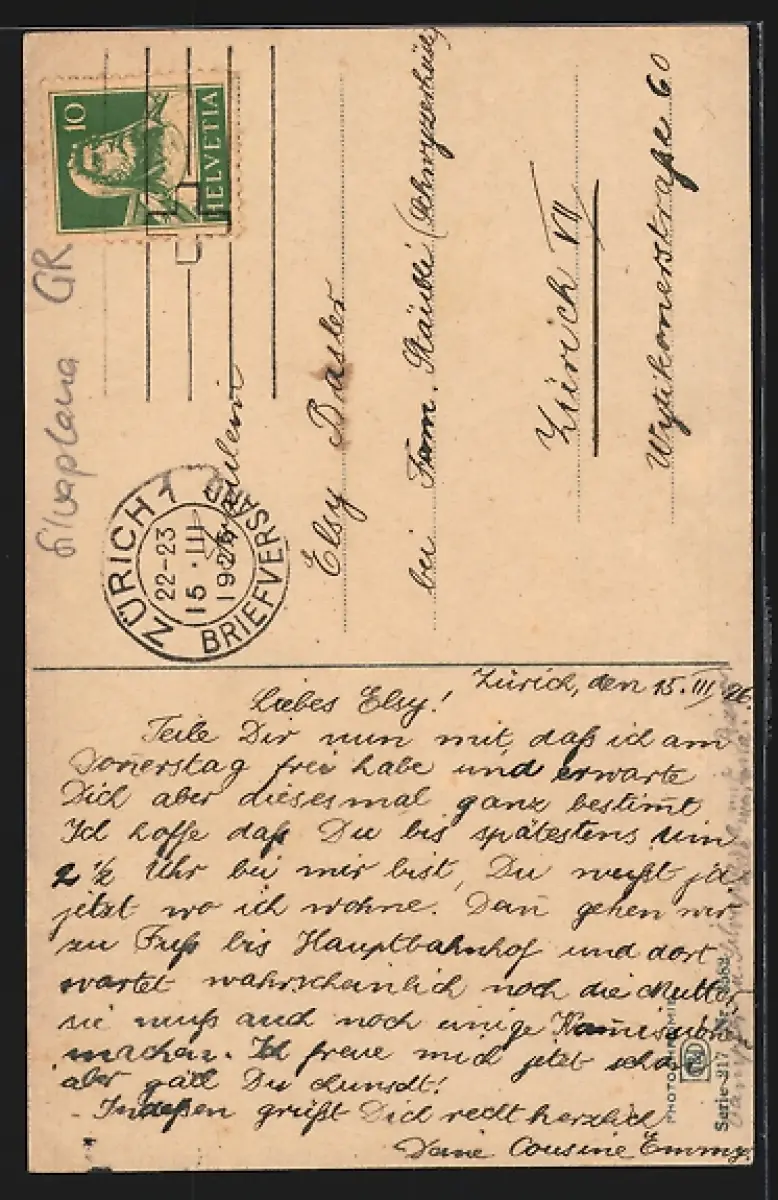 10
HELVETIA
Silvaplana GR
ZÜRICH 1
22-23
15. III
1926
BRIEFVERSAND
Fräulein
Elsy Basler
bei Fam. Stäubli
Zürich VII
Wytikonerstraße 60
Zürich, den 15. III 26.
Liebes Elsy!
Teile Dir nun mit, daß ich am
Donnerstag frei habe und erwarte
Dich aber diesesmal ganz bestimmt
Ich hoffe daß Du bis spätestens um
2 ½ Uhr bei mir bist, Du weißt ja
jetzt wo ich wohne. Dann gehen wir
zu Fuß bis Hauptbahnhof und dort
wartet wahrscheinlich noch die Mutter
sie muß auch noch einige
machen. Ich freue mich jetzt schon
aber gäll Du chunsdt!
Indessen grüßt Dich recht herzlich
Deine Cousine Emmy.
PHOTOCHEMIE
Serie 217